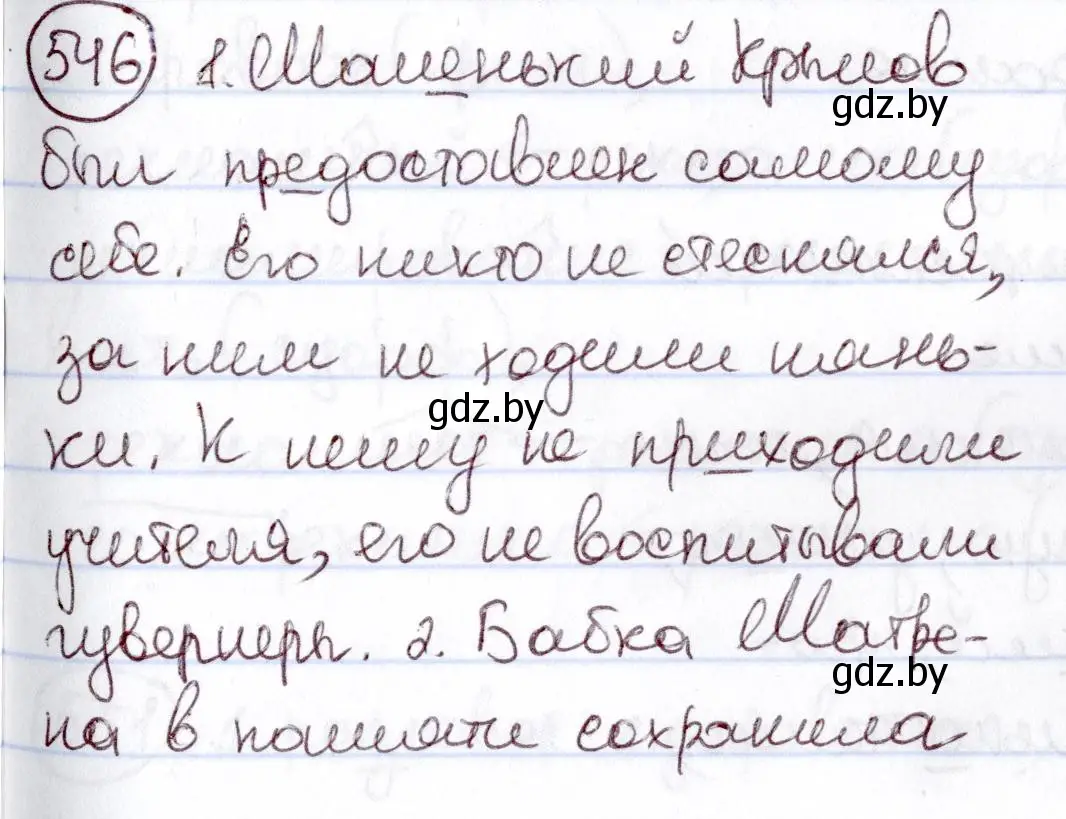 546 1. Маленький Крылов
gdz.by
был предоставлен самому
себе. Его никто не стеснялся,
за ним не ходили нянь-
gdz.by
ки. К нему не приходили
учителя, его не воспитывали
гувернеры. 2. Бабка Матре-
gdz.by
на в памяти сохранила